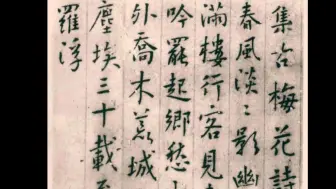 集古梅花詩
春風淡〻影幽
滿樓行客見
吟罷起鄉愁
外喬木城
塵埃三十載
羅浮